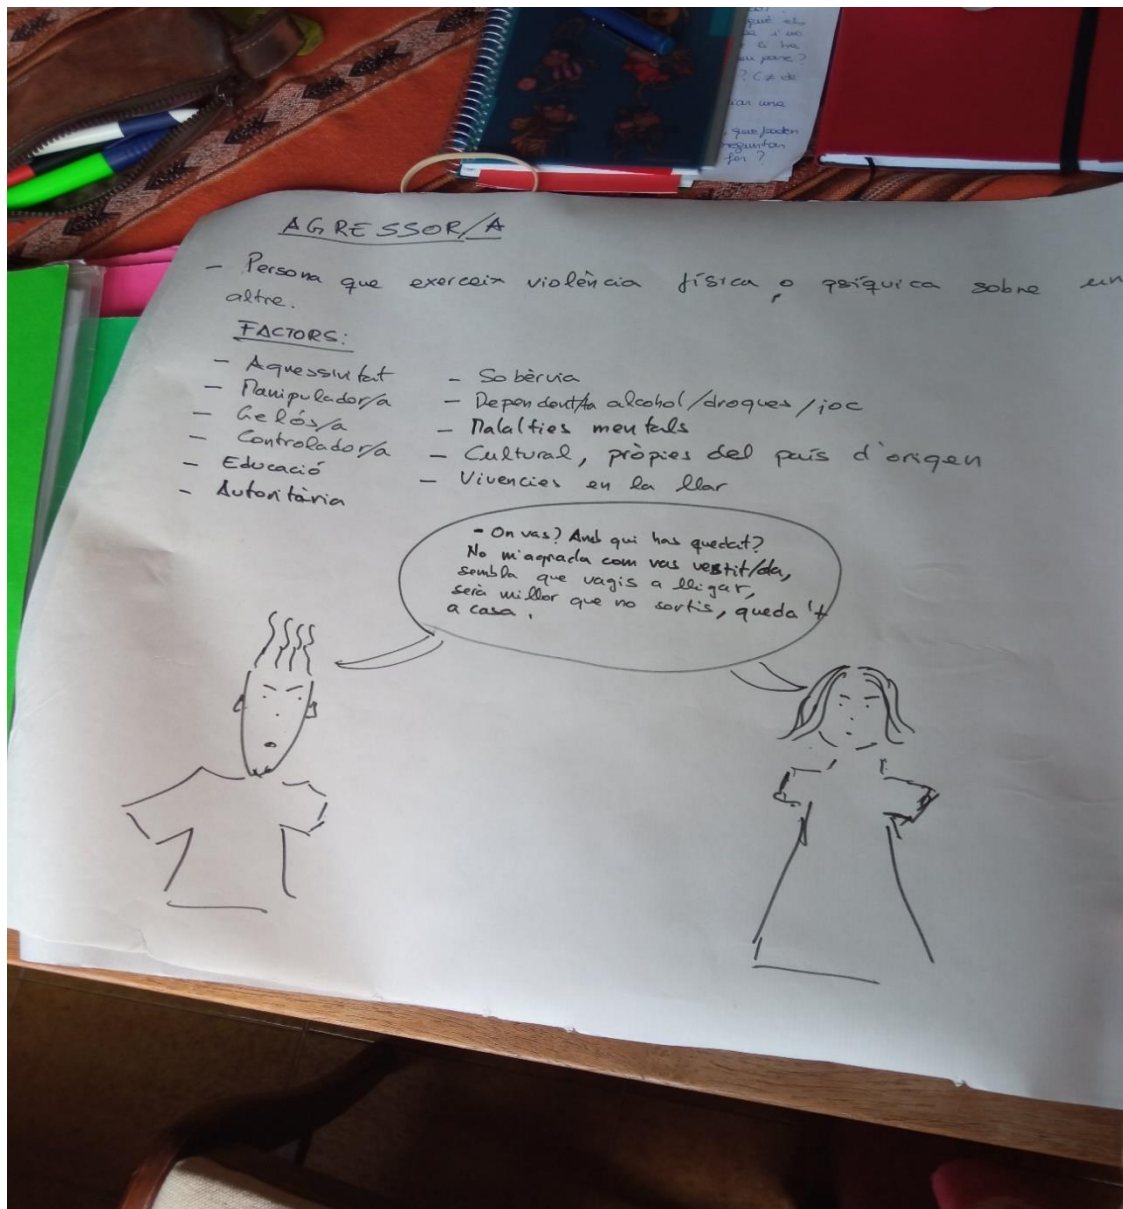 AGRESSOR/A
- Persona que exerceix violència física o psíquica sobre un
altre.
FACTORS:
- Agressivitat
- Manipulador/a
- Gelós/a
- Controlador/a
- Educació
- Autoritària
- Sobèrvia
- Dependent/ta alcohol/drogues/joc
- Malalties mentals
- Cultural, pròpies del país d'origen
- Vivencies en la llar
- On vas? Amb qui has quedat?
No m'agrada com vas vestit/da,
sembla que vagis a lligar,
serà millor que no sortis, queda't
a casa.